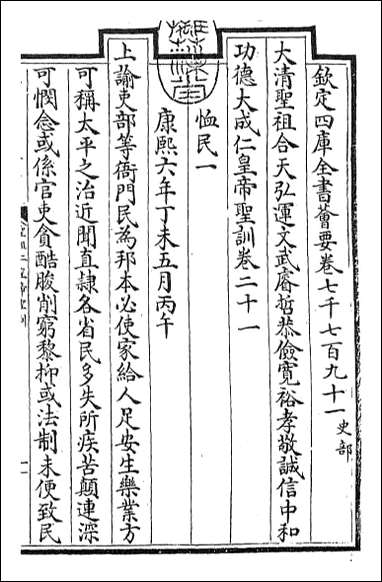 欽定四庫全書薈要卷七千七百九十一 史部
大清聖祖合天弘運文武睿哲恭儉寬裕孝敬誠信中和
功德大成仁皇帝聖訓卷二十一
恤民一
康熙六年丁未五月丙午
上諭吏部等衙門民為邦本必使家給人足安生樂業方
可稱太平之治近聞直隸各省民多失所疾苦顛連深
可憫念或係官吏貪酷朘削窮黎抑或法制未便致民